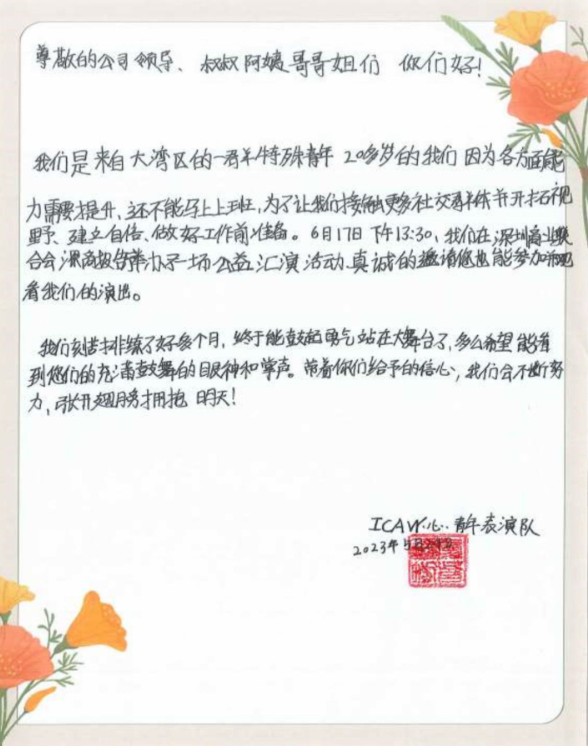 尊敬的公司领导、叔叔阿姨哥哥姐们 你们好!
我们是来自大湾区的一群特殊青年 20多岁的我们 因为各方面能
力需要提升,还不能马上上班,为了让我们接触更多社交群体并开拓视
野、建立自信、做好工作前准备。6月17日下午13:30,我们在深圳商业联
合会 举办了一场公益汇演活动 真诚的邀请您也能参加
看我们的演出。
我们刻苦排练了好多个月,终于能鼓起勇气站在大舞台了,多么希望能看
到您们的充满鼓舞的眼神和掌声。带着你们给予的信心,我们会不断努
力,张开翅膀拥抱 明天!
ICAN 心 青年表演队
2023年